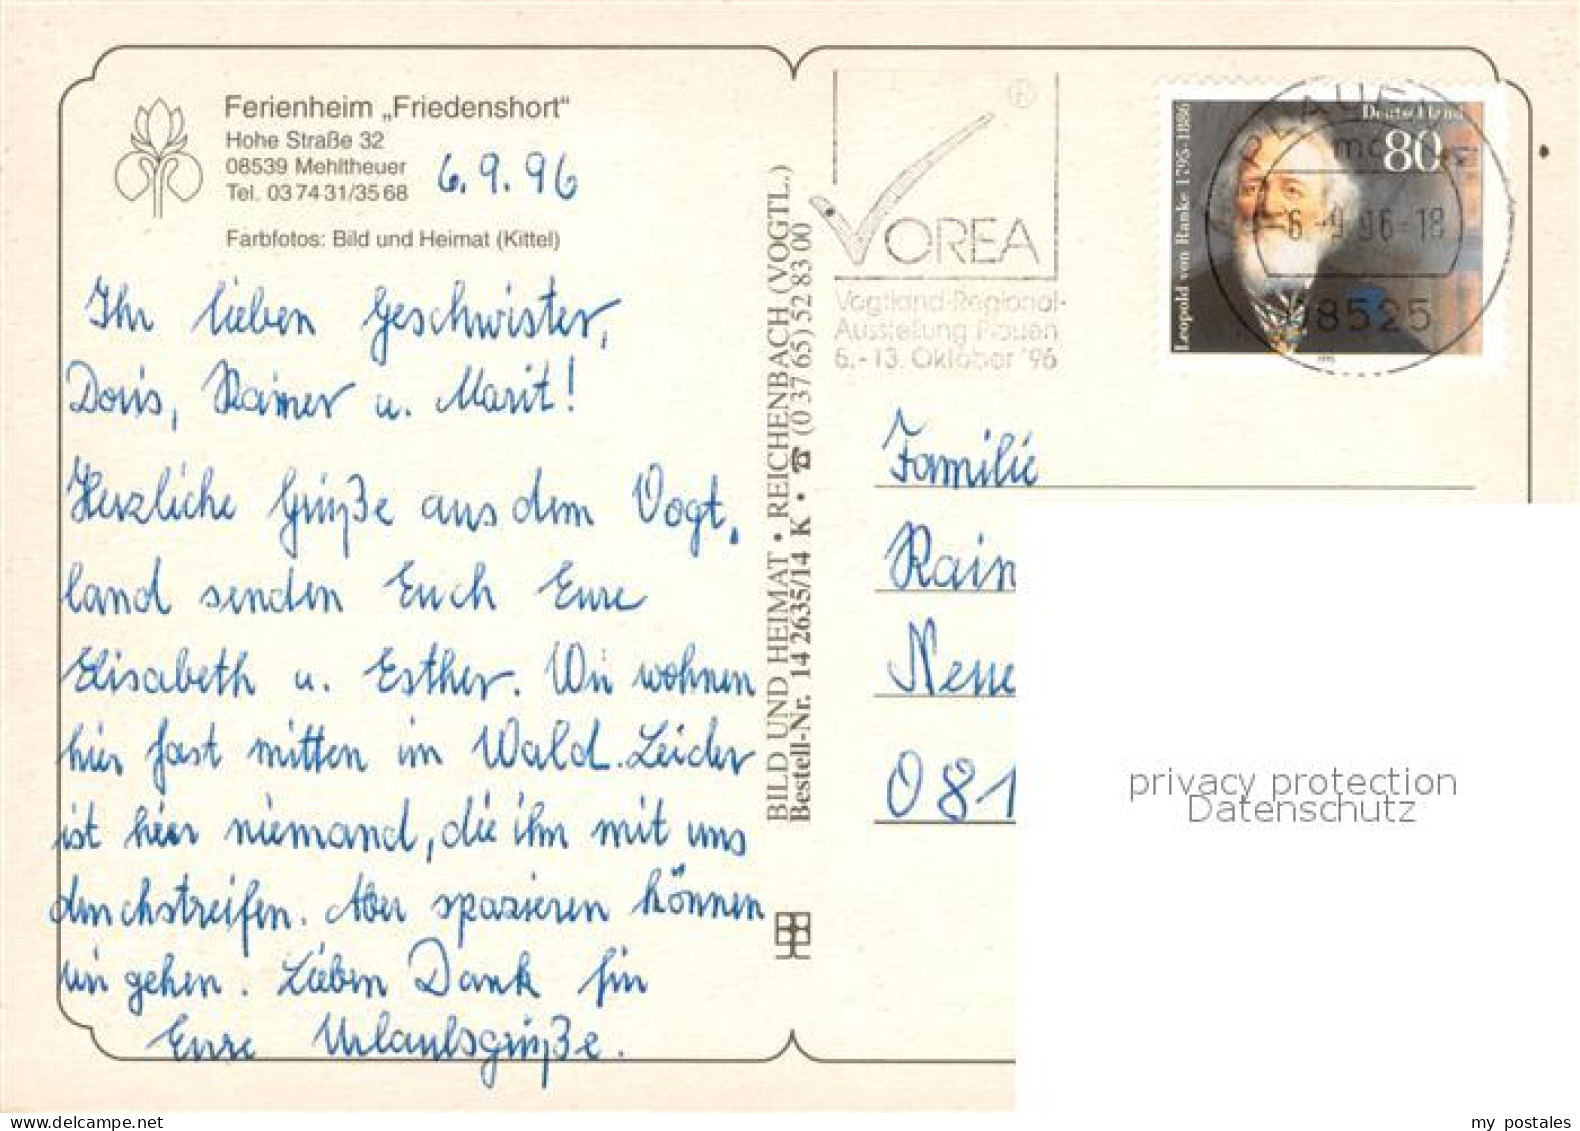 Ferienheim „Friedenshort“
Hohe Straße 32
08539 Mehltheuer
Tel. 03 74 31/35 68
6.9.96
Farbfotos: Bild und Heimat (Kittel)
Ihr lieben Geschwister,
Doris, Rainer u. Marit!
Herzliche Grüße aus dem Vogt,
land senden Euch Eure
Elisabeth u. Esther. Wir wohnen
hier fast mitten im Wald. Leider
ist hier niemand, die ihn mit uns
durchstreifen. Aber spazieren können
wir gehen. Lieben Dank für
Eure Urlaubsgrüße.
BILD UND HEIMAT • REICHENBACH (VOGTL.)
Bestell-Nr. 14 2635/14 K • ☎ (0 37 65) 52 83 00
®
VOREA
Vogtland-Regional-
Ausstellung Plauen
6.-13. Oktober '96
Leopold von Ranke 1795-1886
Deutschland
80
1995
PLAUEN
6.-9.96-18
08525
Familie
Rain
Neue
081
privacy protection
Datenschutz
my postales